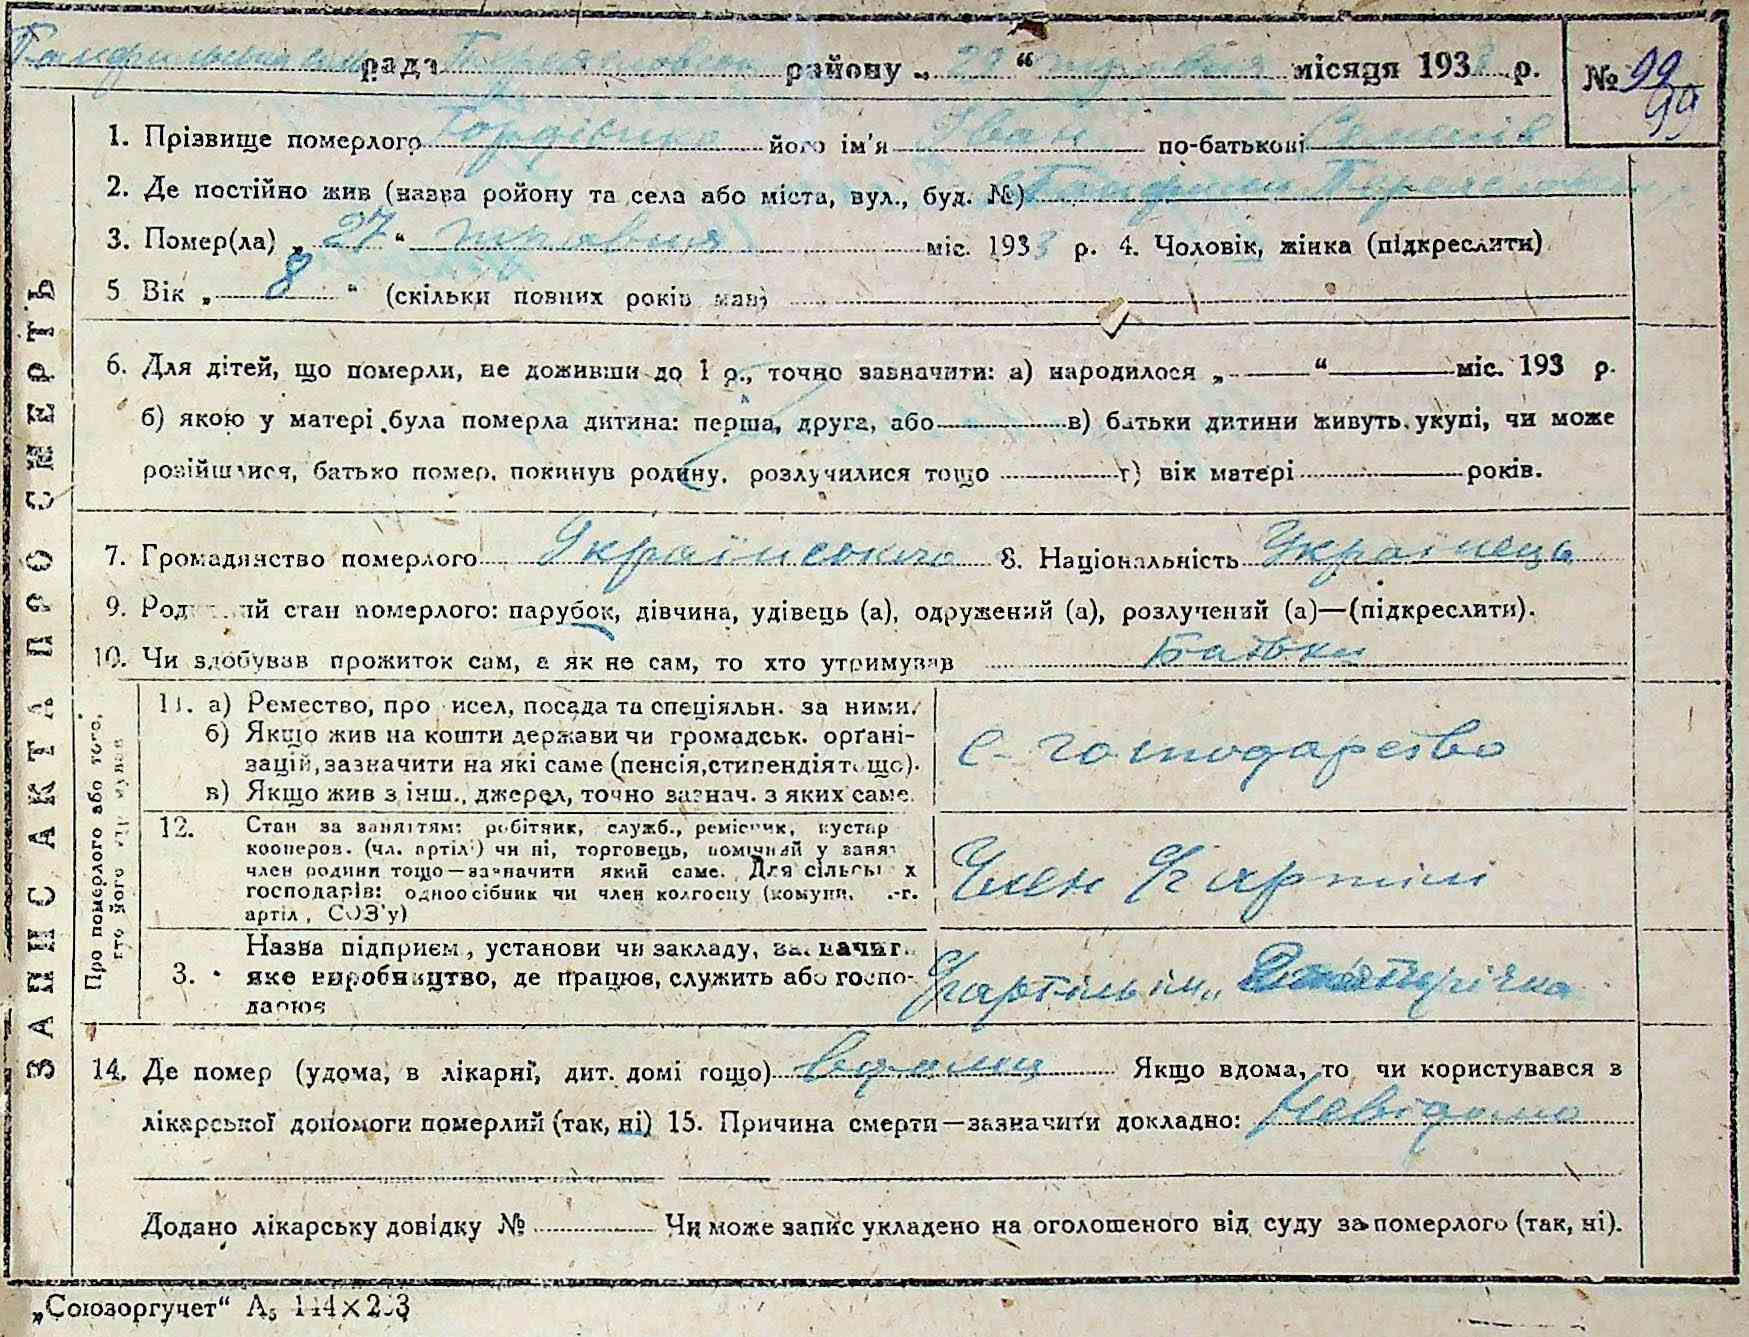 рада району „ 29 “ травня місяця 1933 р. № 99
99
1. Прізвище померлого Гордієнко його ім'я Іван по-батькові Семенів
2. Де постійно жив (назва ройону та села або міста, вул., буд. №)
3. Помер(ла) „ 27 “ травня міс. 1933 р. 4. Чоловік, жінка (підкреслити)
5 Вік „ 8 “ (скільки повних років мав)
6. Для дітей, що померли, не доживши до 1 р., точно зазначити: а) народилося „ “ міс. 193 р.
б) якою у матері була померла дитина: перша, друга, або в) батьки дитини живуть укупі, чи може
розійшлися, батько помер, покинув родину, розлучилися тощо г) вік матері років.
7. Громадянство померлого Українського 8. Національність Українець
9. стан померлого: парубок, дівчина, удівець (а), одружений (а), розлучений (а)—(підкреслити).
10. Чи здобував прожиток сам, а як не сам, то хто утримував Батьки
ЗАПИС АКТА ПРО СМЕРТЬ
Про померлого або того,
хто його утримував
11. а) Ремество, про исел, посада та спеціяльн. за ними.
б) Якщо жив на кошти держави чи громадськ. орґані-
зацій, зазначити на які саме (пенсія, стипендія тощо).
в) Якщо жив з інш., джерел, точно зазнач. з яких саме.
с-господарство
12. Стан за заняттям: робітник, служб., ремісник, кустар
кооперов. (чл. артіл.) чи ні, торговець, помічний у занят
член родини тощо—зазначити який саме. Для сільськ х
господарів: одноосібник чи член колгоспу (комуни, .-г.
артіл, СОЗ'у)
Член С/г артілі
3. Назва підприєм, установи чи закладу, зазначит.
яке виробництво, де працює, служить або госпо-
дарює
14. Де помер (удома, в лікарні, дит. домі тощо) вдома Якщо вдома, то чи користувався в
лікарської допомоги померлий (так, ні) 15. Причина смерти—зазначити докладно: Невідома
Додано лікарську довідку № Чи може запис укладено на оголошеного від суду за померлого (так, ні).
„Союзоргучет“